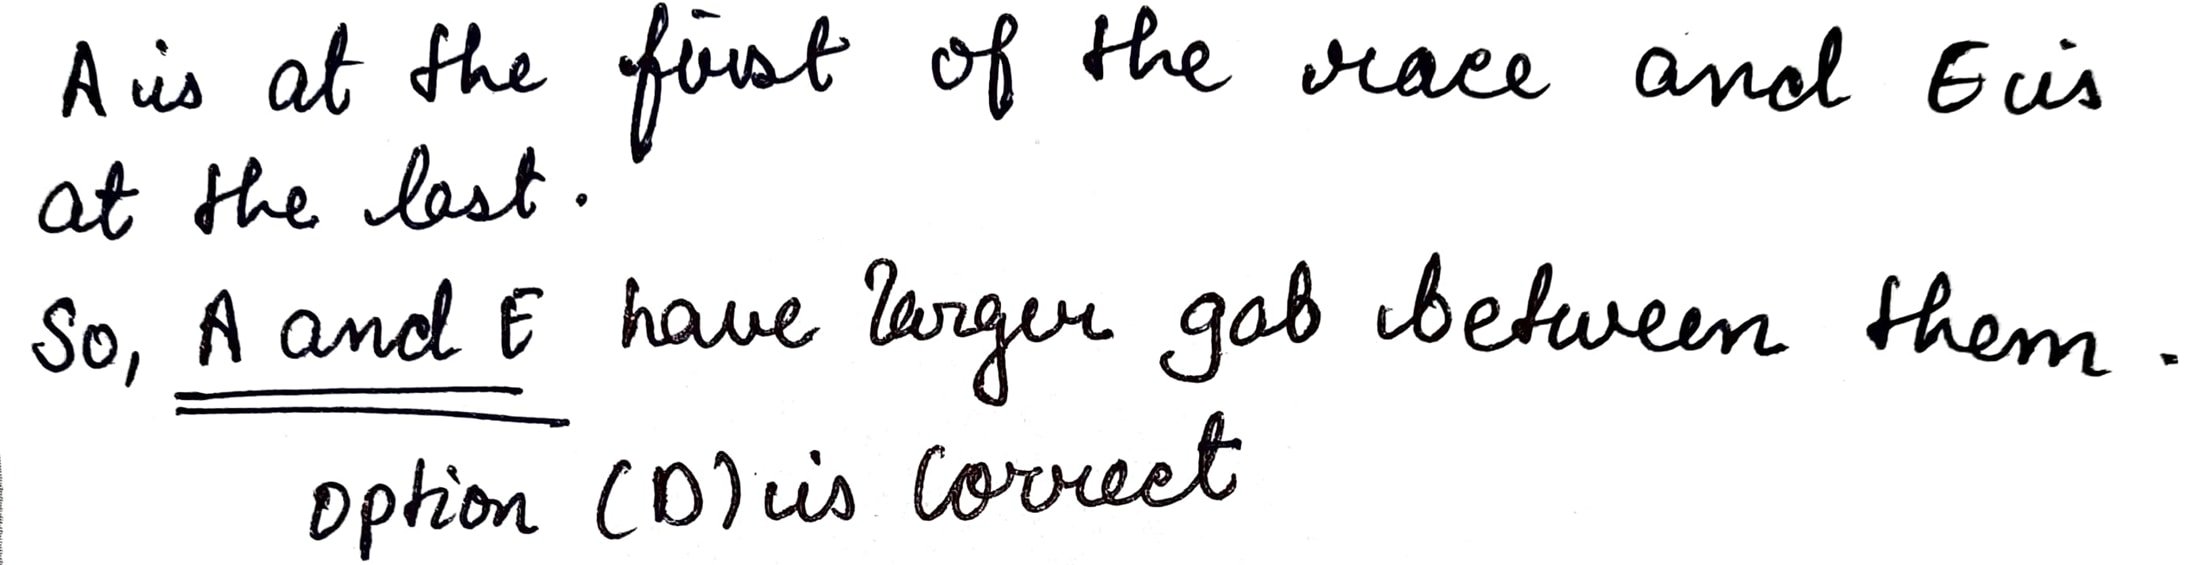 A is at the first of the race and E is
at the last.
So, A and E have larger gab between them.
option (D) is correct